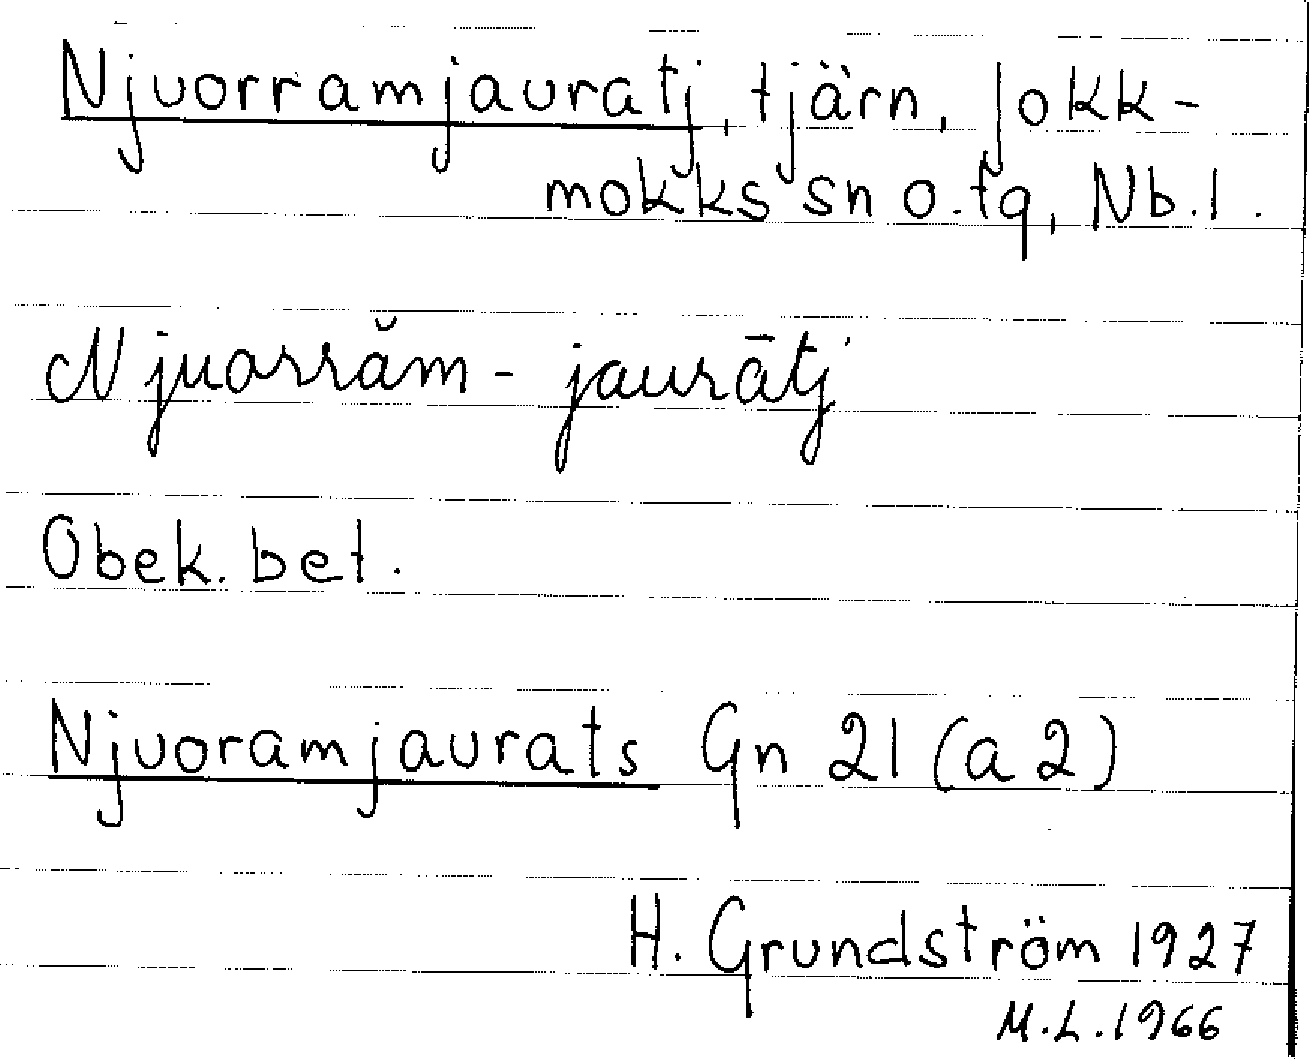 Njuorramjauratj, tjärn, Jokk-
mokks sn o. tg, Nb. l.
Njuorrăm-jaurātj
Obek. bet.
Njuoramjaurats Gn 21 (a 2)
H. Grundström 1927
M.L. 1966